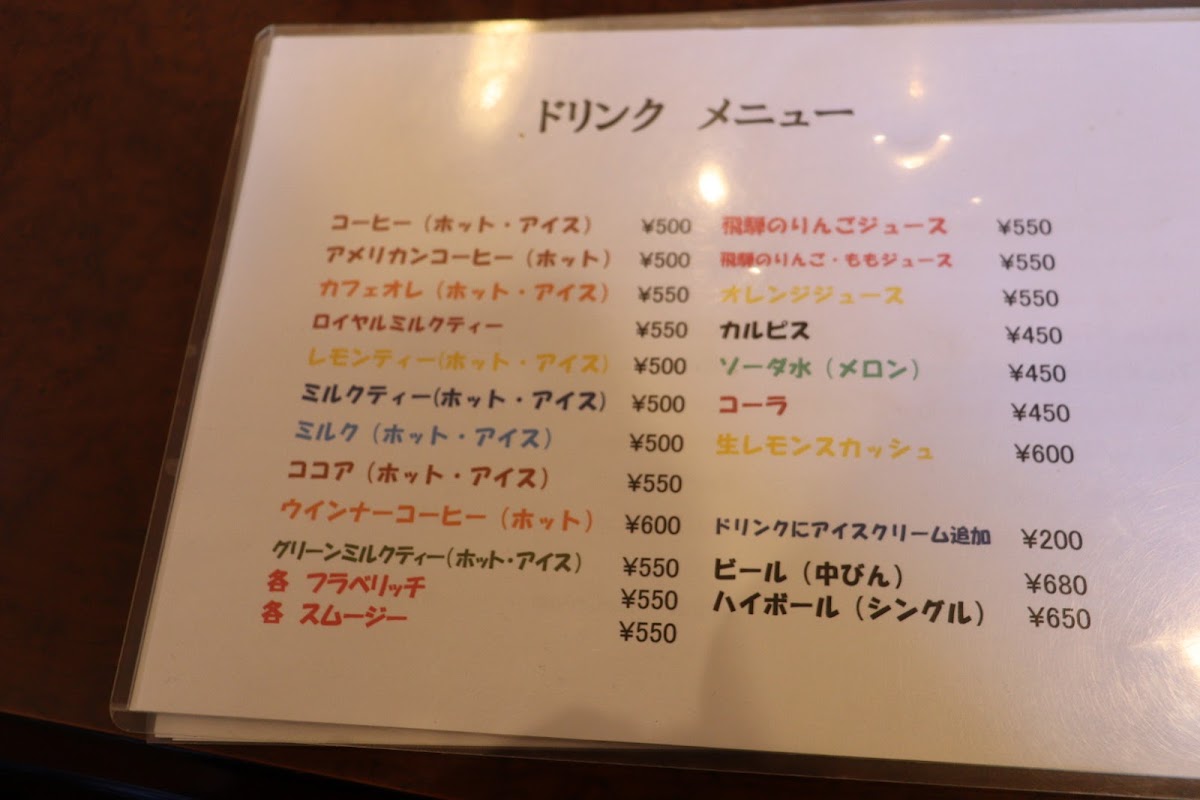 ドリンク メニュー
コーヒー（ホット・アイス） ¥500
アメリカンコーヒー（ホット） ¥500
カフェオレ（ホット・アイス） ¥550
ロイヤルミルクティー ¥550
レモンティー(ホット・アイス） ¥500
ミルクティー(ホット・アイス） ¥500
ミルク（ホット・アイス） ¥500
ココア（ホット・アイス） ¥550
ウインナーコーヒー（ホット） ¥600
グリーンミルクティー(ホット・アイス） ¥550
各 フラベリッチ ¥550
各 スムージー ¥550
飛騨のりんごジュース ¥550
飛騨のりんご・ももジュース ¥550
オレンジジュース ¥550
カルピス ¥450
ソーダ水（メロン） ¥450
コーラ ¥450
生レモンスカッシュ ¥600
ドリンクにアイスクリーム追加 ¥200
ビール（中びん） ¥680
ハイボール（シングル） ¥650